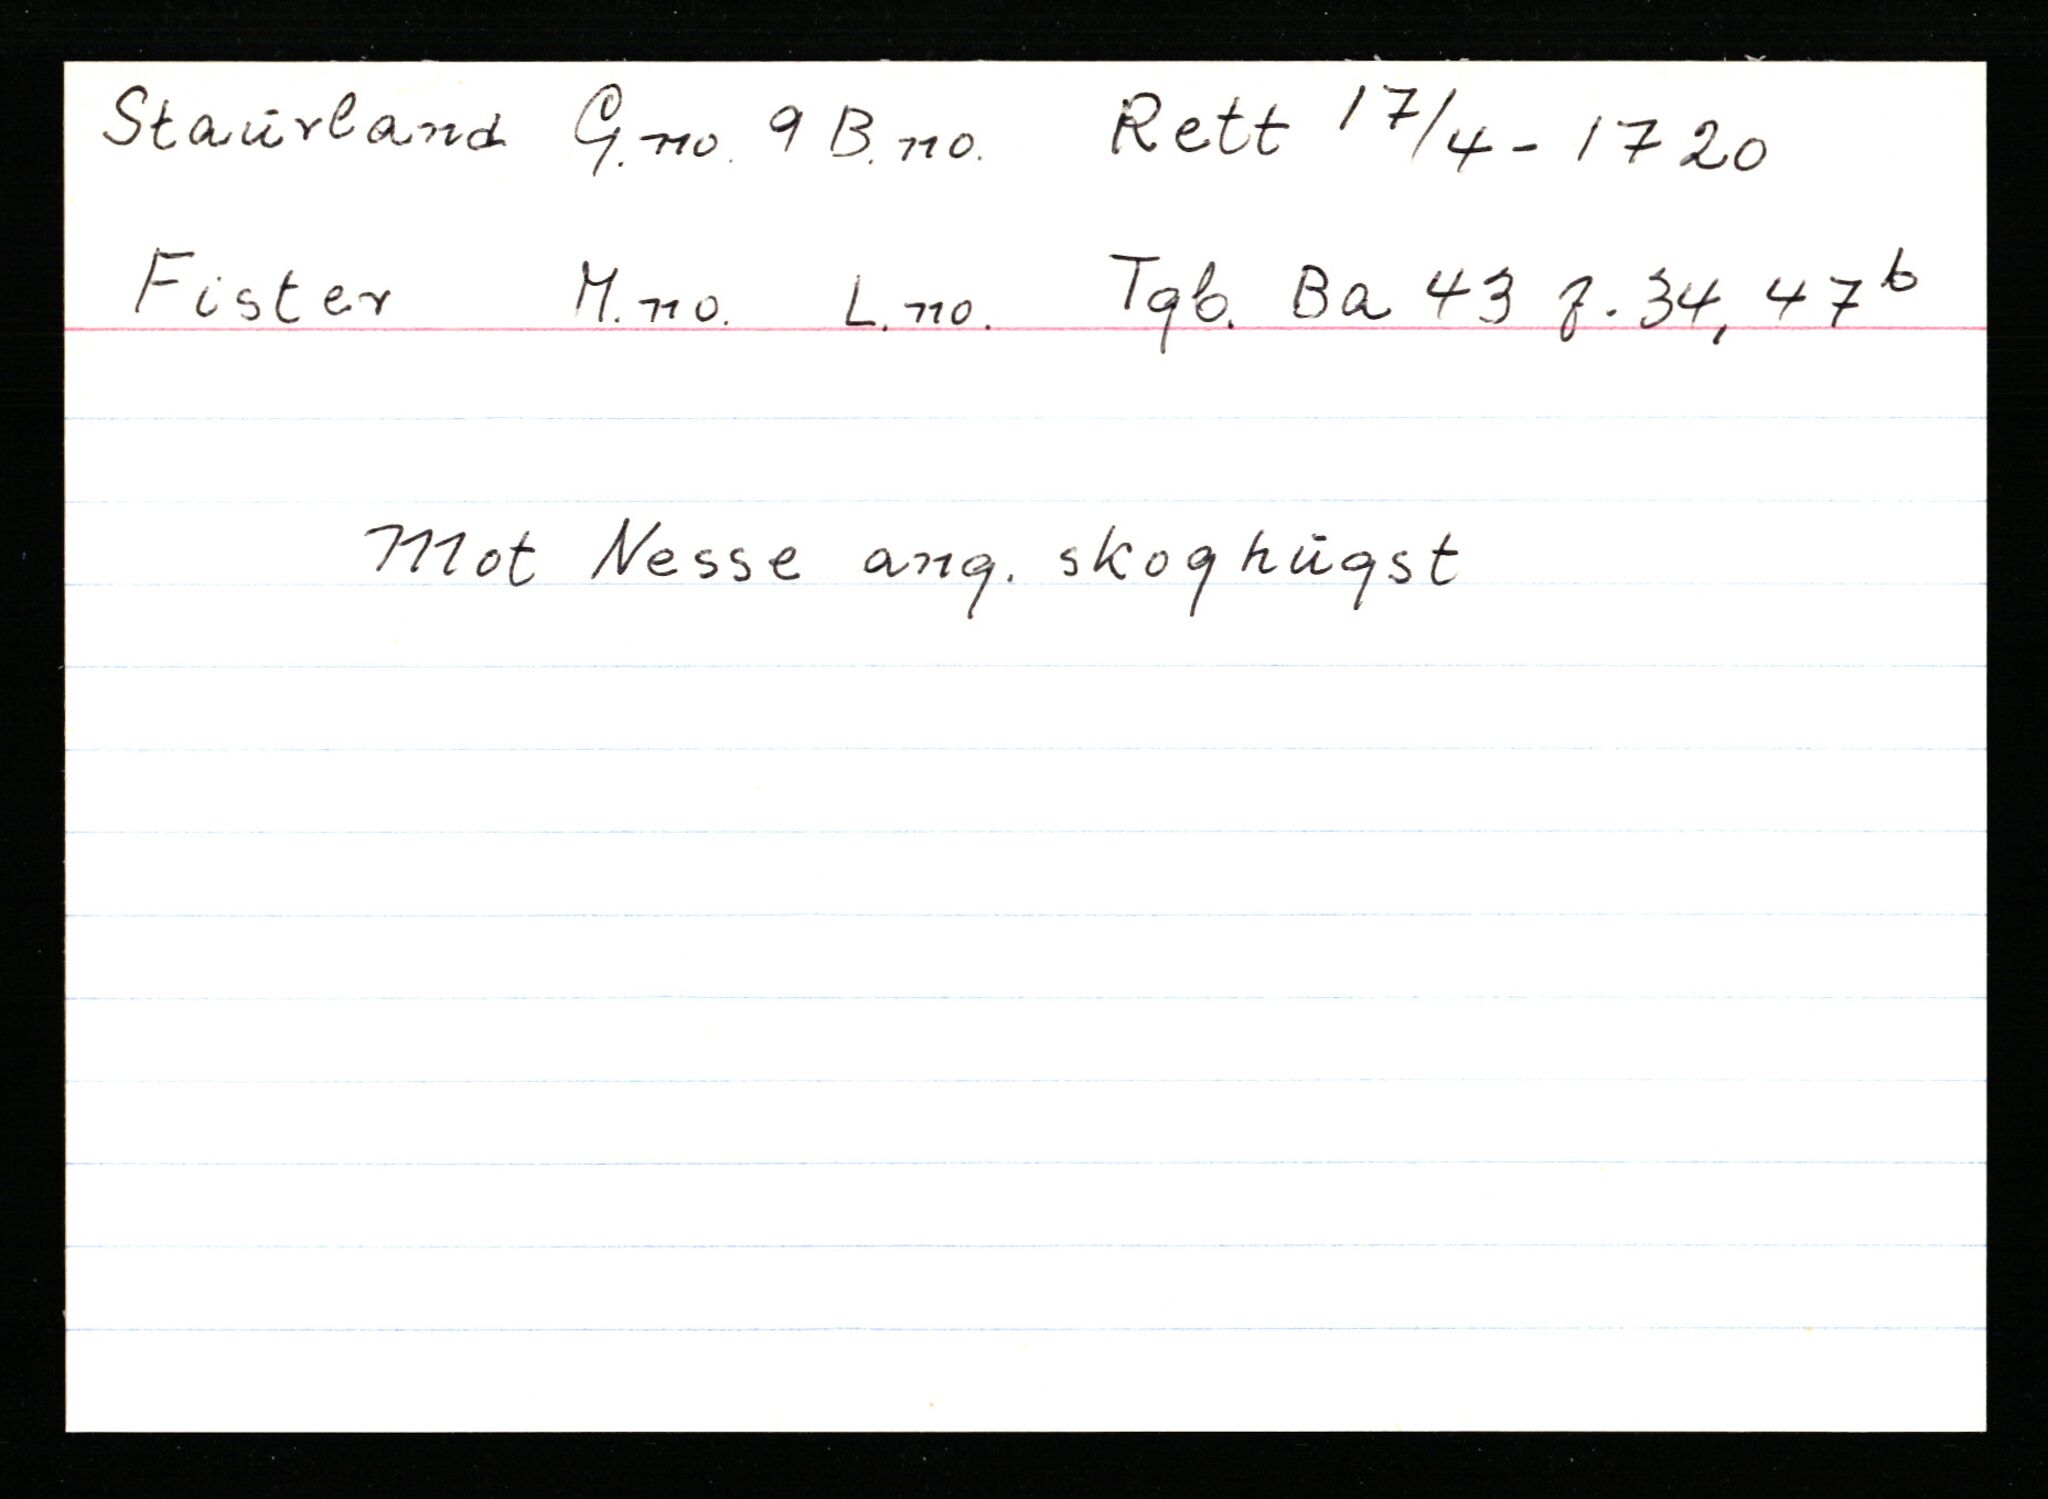 Staurland G.no. 9 B.no. Rett 17/4-1720
Fister M.no. L.no. Tgb. Ba 43 f. 34, 47b
Mot Nesse ang. skoghugst